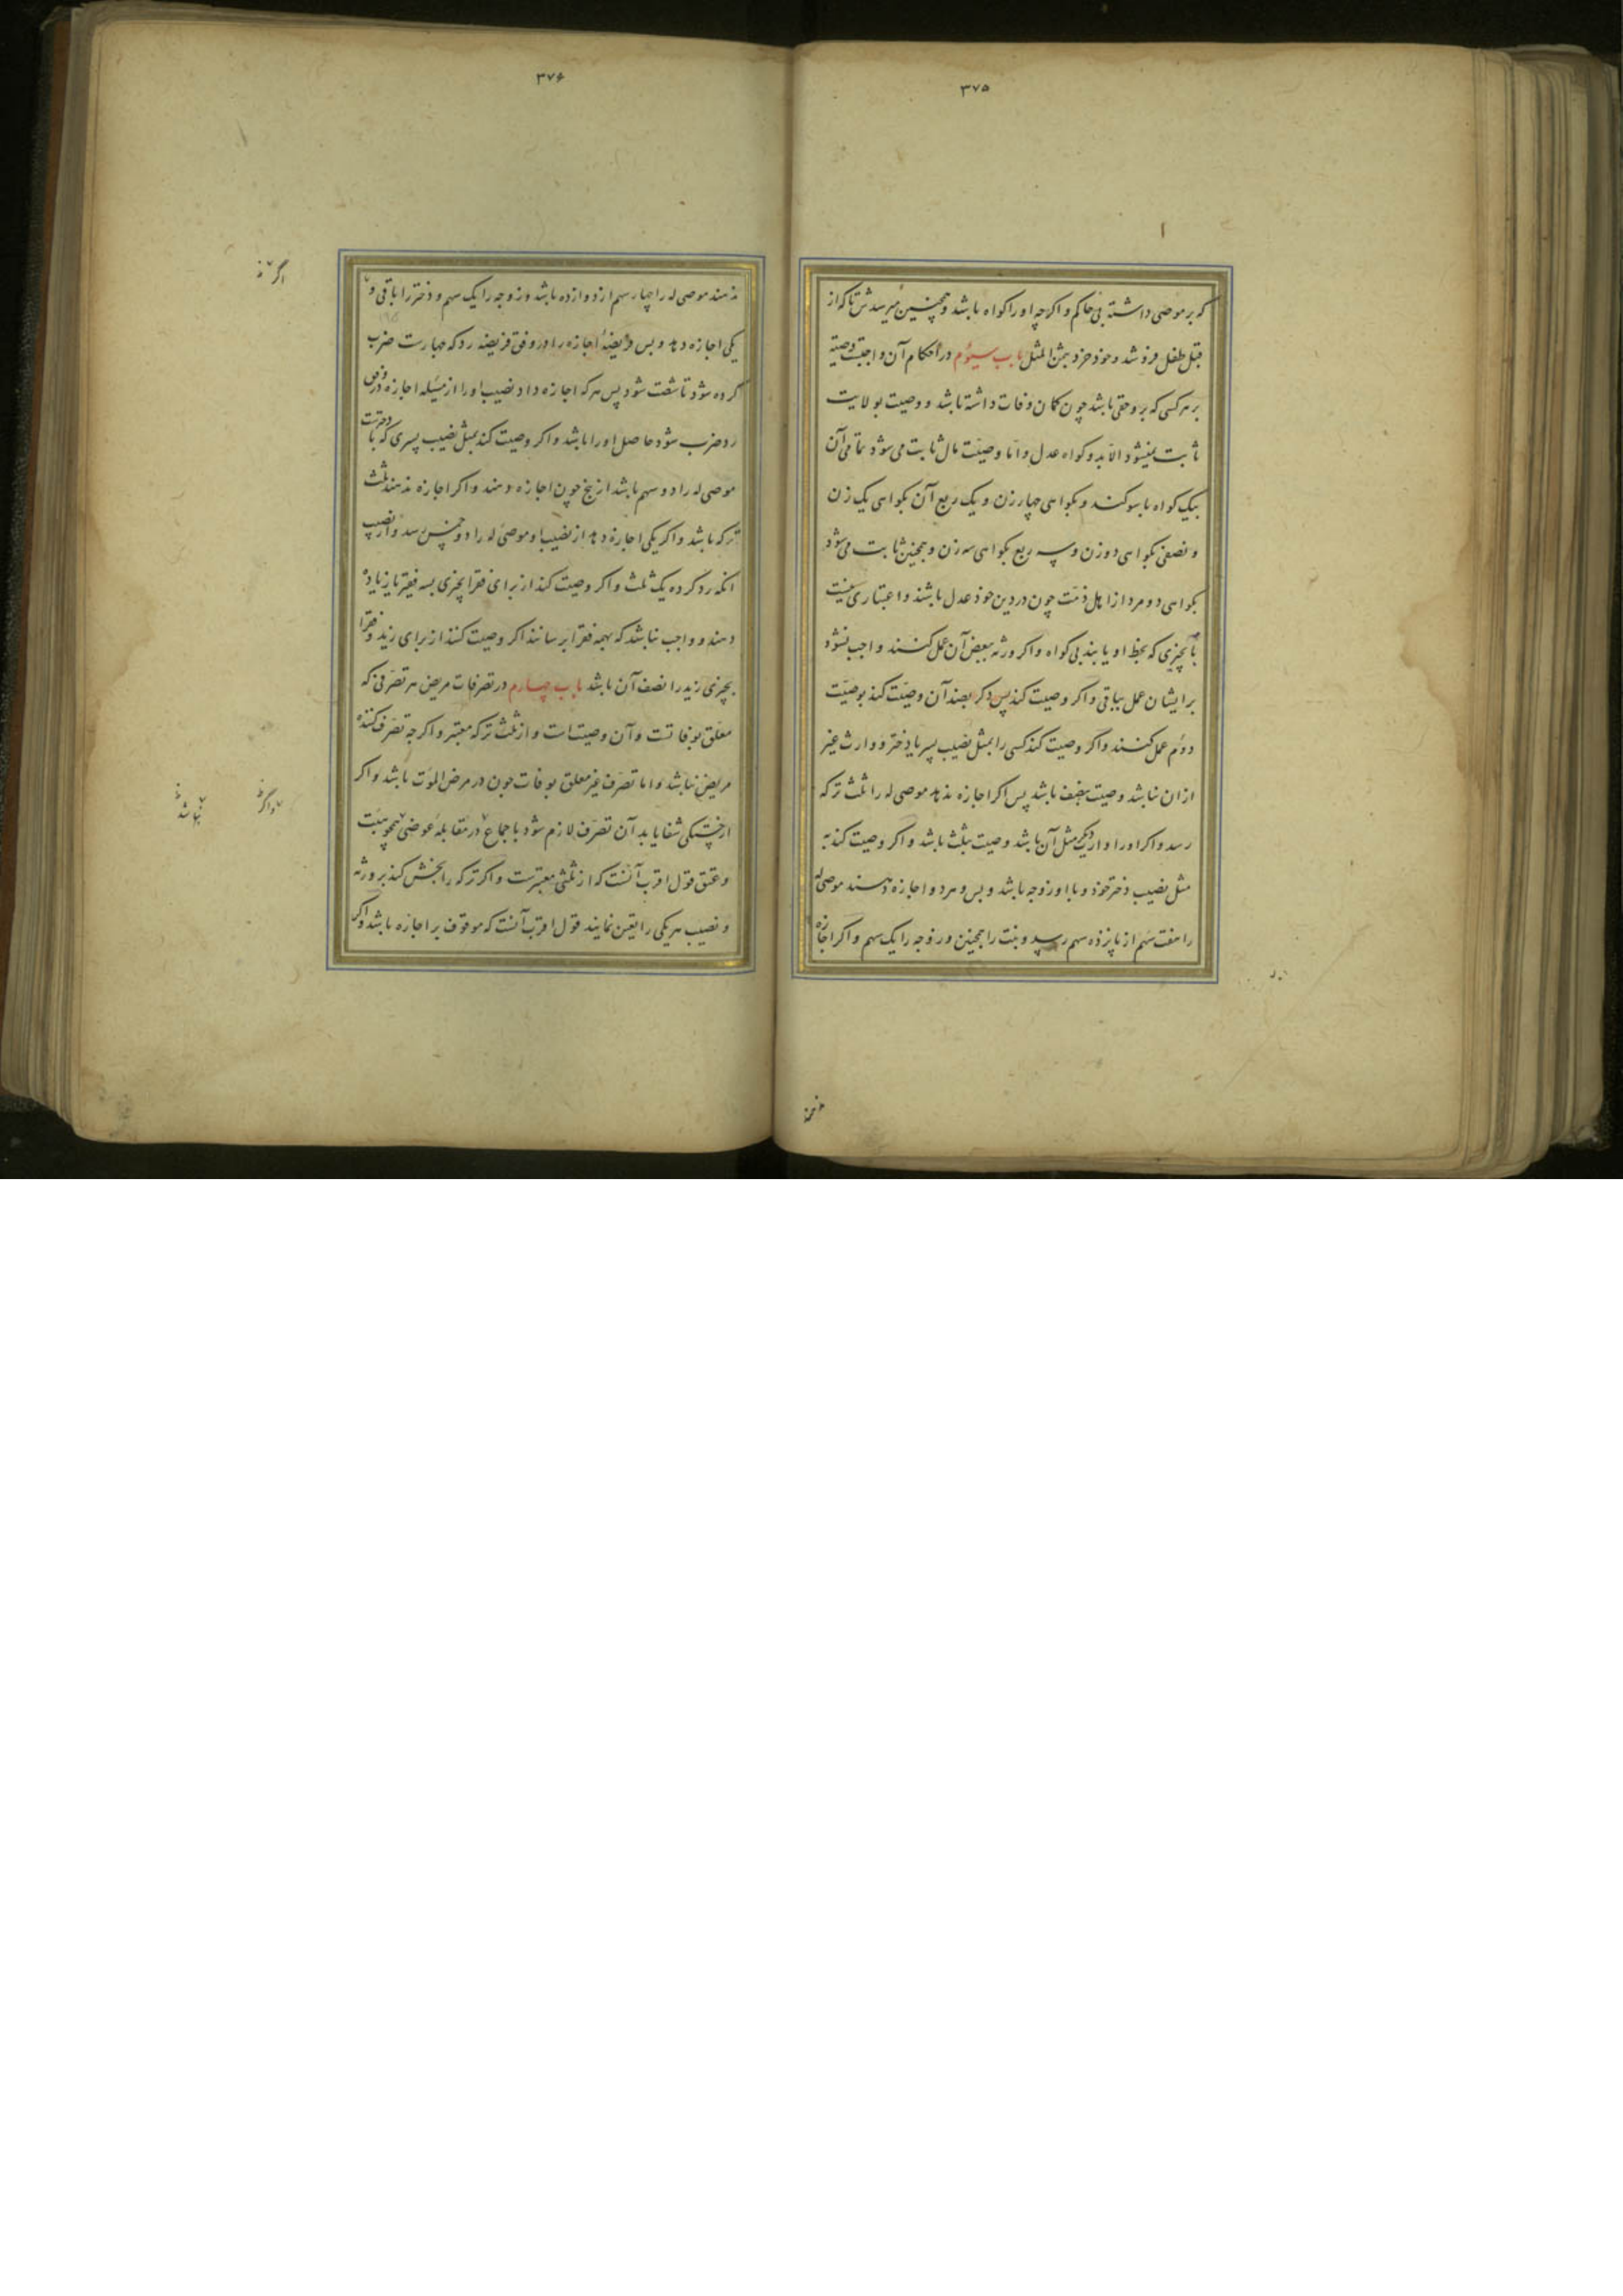 ۳۷۵
که بر موصی داشته بی حاکم و اکرچه اورا کواه باشد و همچنین میرسدش تا که از
قبل طفل فروشد و خود خرد بثمن المثل باب سیوم در احکام آن واجبست وصیته
بر هرکسی که برو حقی باشد چون کمان وفات داشته باشد و وصیت بولایت
ثابت نمیشود الا بدو کواه عدل و اما وصیت مال ثابت می شود تمامی آن
بیک کواه با سوکند و بکواهی چهار زن و یک ربع آن بکواهی یک زن
و نصفی بکواهی دو زن و سه ربع بکواهی سه زن و همچنین ثابت می شود
بکواهی دو مرد از اهل ذمت چون در دین خود عدل باشند و اعتباری نیست
بآنچیزی که بخط او یابند بی کواه و اکر ورثه ببعض آن عمل کنند واجب نشود
بر ایشان عمل بباقی و اکر وصیت کند پس دکر بضد آن وصیت کند بوصیت
دوم عمل کنند و اکر وصیت کند کسی را بمثل نصیب پسر یا دختر و وارث غیر
ازان نباشد وصیت بنصف باشد پس اکر اجازه ندهد موصی له را ثلث ترکه
رسد و اکر اورا وارثی دیکر مثل آن باشد وصیت بثلث باشد و اکر وصیت کند به
مثل نصیب دختر خود و با او زوجه باشد و بس و هر دو اجازه دهند موصی له
را هفت سهم از پانزده سهم رسد و بنت را همچنین و زوجه را یک سهم و اکر اجازه
۳۷۶
ندهند موصی له را چهار سهم از دوازده باشد و زوجه را یک سهم و دختر را باقی و
یکی اجازه دهد و بس فریضۀ اجازه را در وفق فریضه رد که چهارست ضرب
کرده شود تا شصت شود پس هرکه اجازه داد نصیب اورا از مسئله اجازه در وفق
رد ضرب شود حاصل اورا باشد و اکر وصیت کند بمثل نصیب پسری که با دخترست
موصی له را دو سهم باشد از پنج چون اجازه دهند و اکر اجازه ندهند ثلث
ترکه باشد و اکر یکی اجازه دهد از نصیب او موصی له را دو خمس رسد و از نصیب
انکه رد کرده یک ثلث و اکر وصیت کند از برای فقرا بچیزی بسه فقیر یا زیاده
دهند و واجب نباشد که بهمه فقرا برسانند اکر وصیت کنند از برای زید و فقرا
بچیزی زید را نصف آن باشد باب چهارم در تصرفات مریض هر تصرفی که
معلق بوفاتست و آن وصیت است و از ثلث ترکه معتبر و اکرچه تصرف کننده
مریض نباشد و اما تصرف غیر معلق بوفات چون در مرض الموت باشد و اکر
از خستکی شفا یابد آن تصرف لازم شود باجماع در مقابلۀ عوضی همچو هبت
و عتق قول اقرب آنست که از ثلثی معتبرست و اکر ترکه را بخش کند بر ورثه
و نصیب هر یکی را تعیین نمایند قول اقرب آنست که موقوف بر اجازه باشد و اکر
اگر
واگر
نباشد